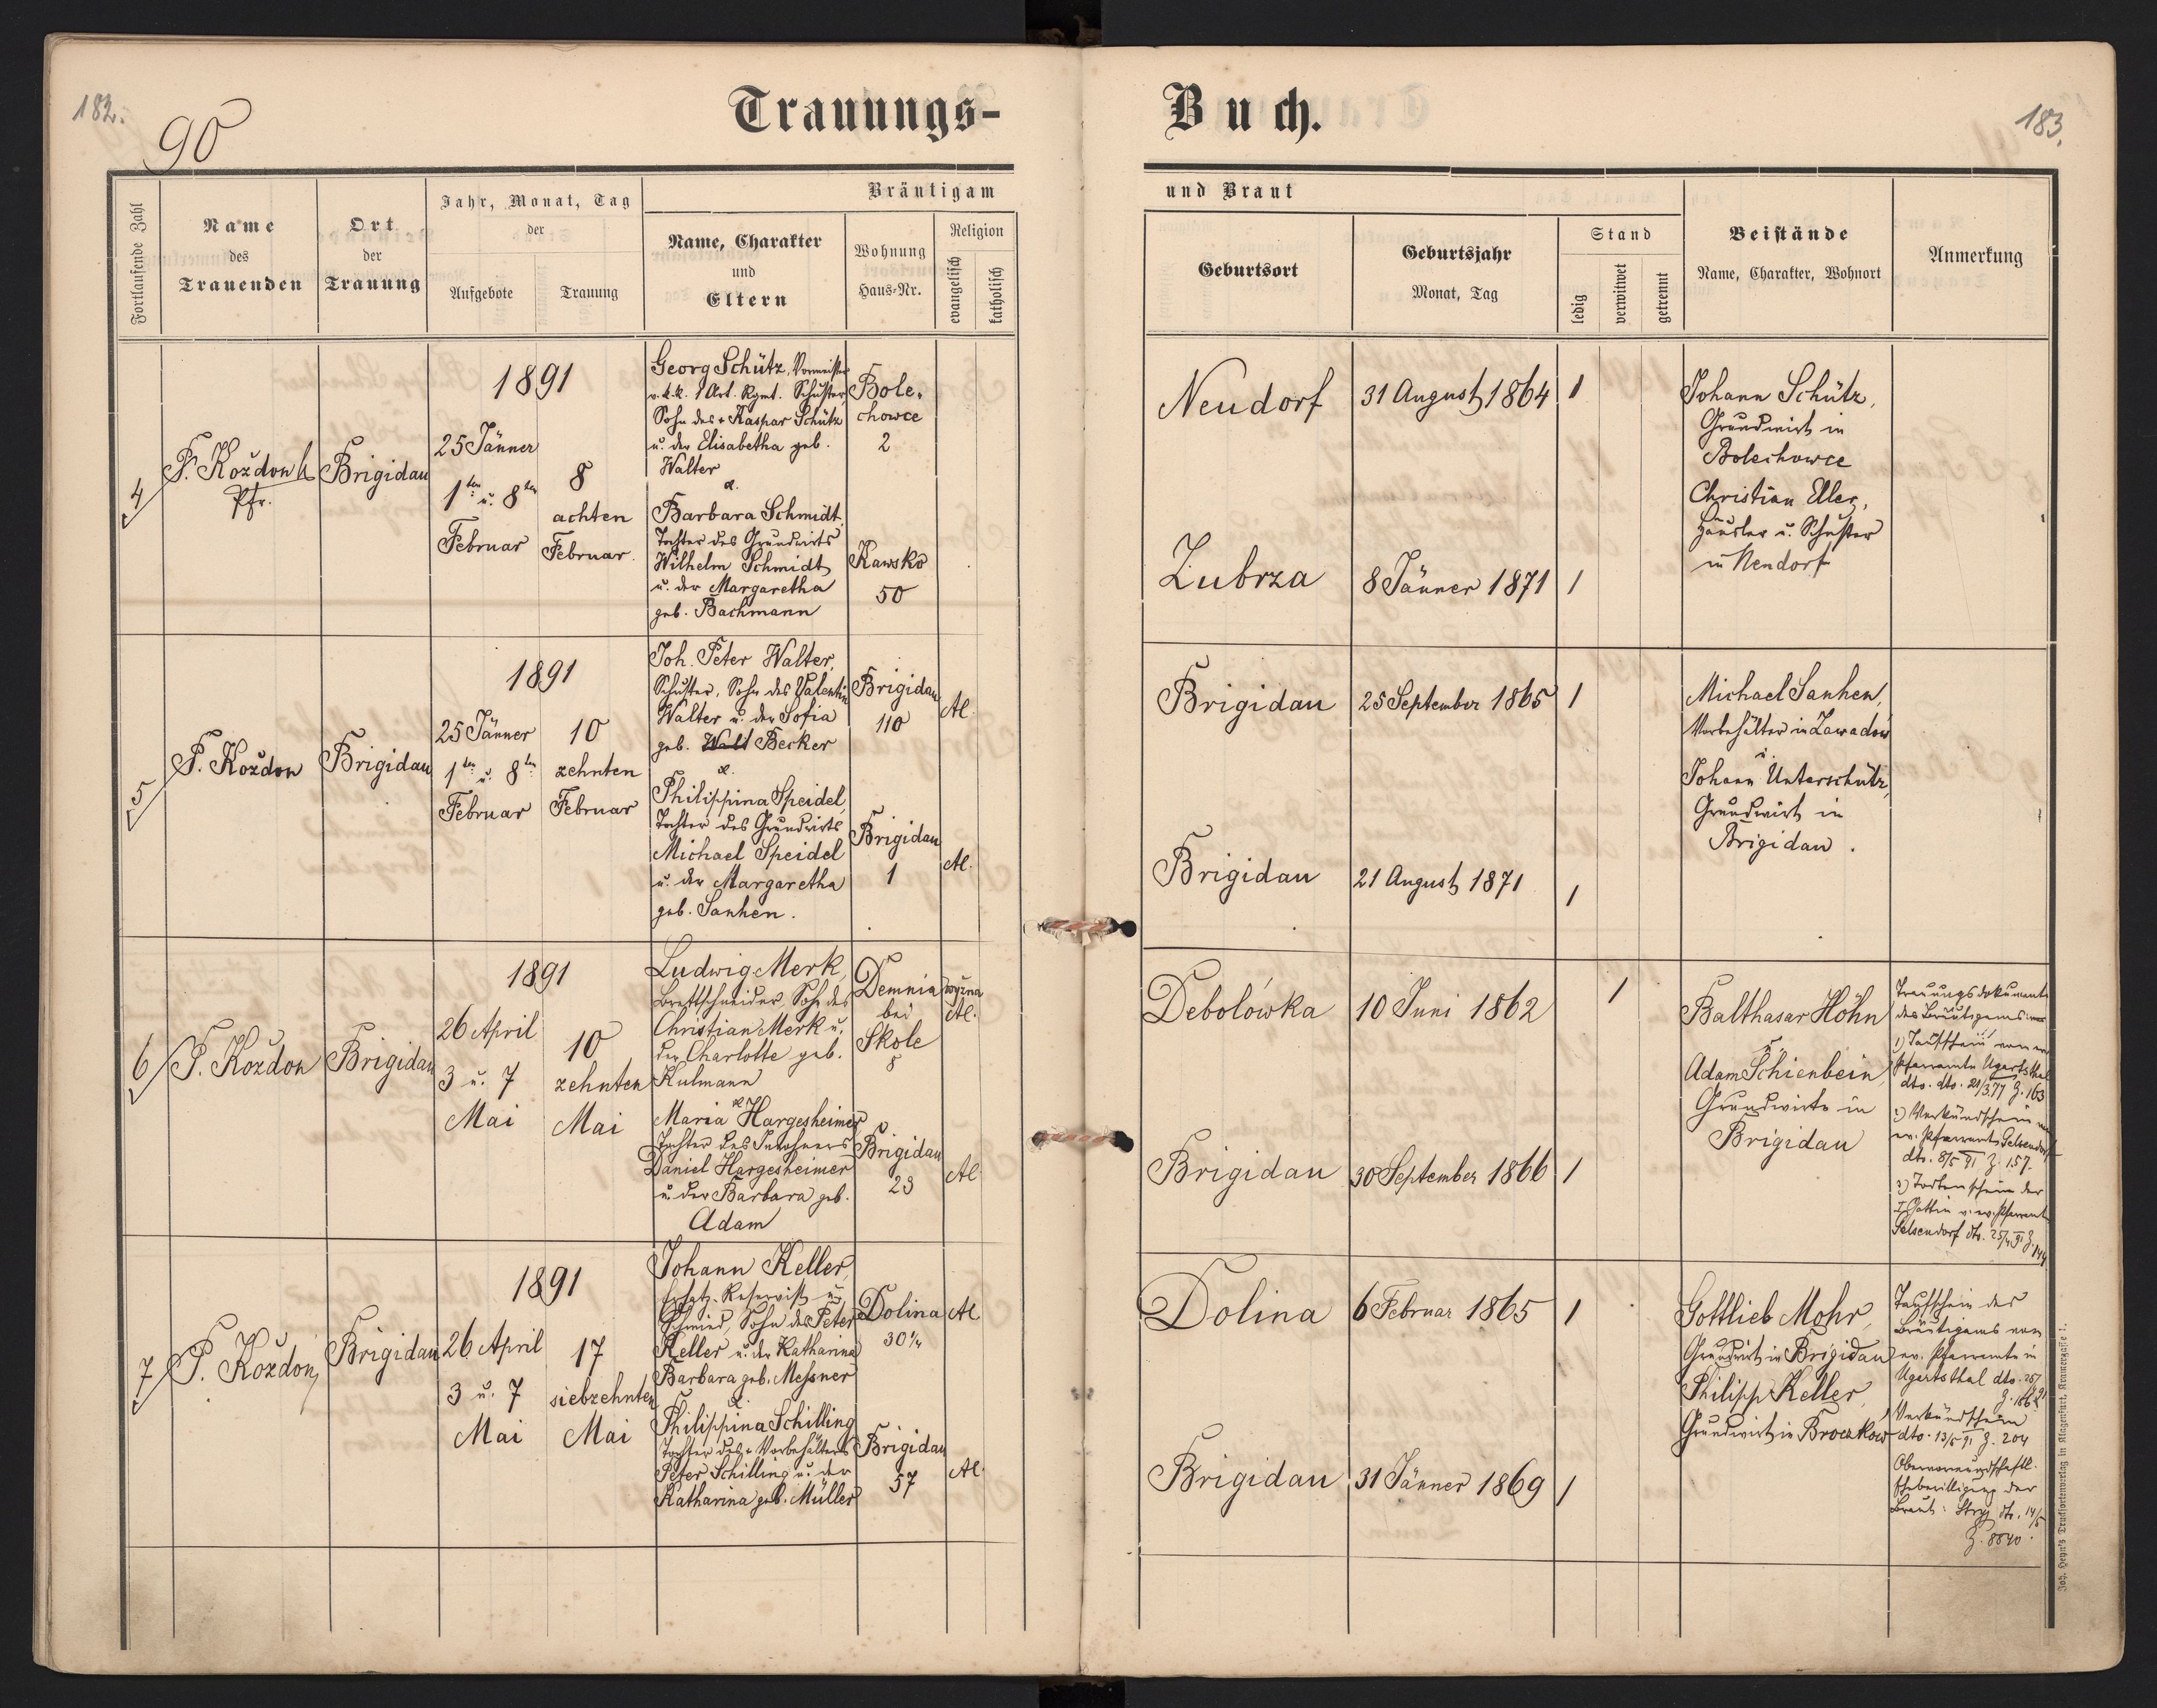 182.
90
Trauungs-
Buch.
183.
Fortlaufende Zahl
Name
des
Trauenden
Ort
der
Trauung
Jahr, Monat, Tag
der
Aufgebote
Trauung
Bräutigam
Name, Charakter
und
Eltern
Wohnung
Haus-Nr.
Religion
evangelisch
katholisch
und Braut
Geburtsort
Geburtsjahr
Monat, Tag
Stand
ledig
verwitwet
getrennt
Beistände
Name, Charakter, Wohnort
Anmerkung
4
P. Koždon
Pfr.
Brigidau
1891
25 Jänner
1ten u. 8ten
Februar
8
achten
Februar.
Georg Schütz, Vormeister
v. k.k. 1 Art. Rgmt. Schuster,
Sohn des + Kaspar Schütz
u. der Elisabetha geb.
Walter
&.
Barbara Schmidt,
Tochter des Grundwirts
Wilhelm Schmidt
u. der Margaretha
geb. Bachmann
Bole-
chowce
2
Kawsko
50
Neudorf
31 August 1864
1
Zubrza
8 Jänner 1871
1
Johann Schütz,
Grundwirt in
Bolechowce
Christian Eller,
Häusler u. Schuster
in Neudorf
5
P. Koždon
Brigidau
1891
25 Jänner
1ten u. 8ten
Februar
10
zehnten
Februar
Joh. Peter Walter,
Schuster, Sohn des Valentin
Walter u. der Sofia
geb. Walt Becker
&.
Philippina Speidel,
Tochter des Grundwirts
Michael Speidel
u. der Margaretha
geb. Sanhen.
Brigidau
110
Al.
Brigidau
1
Al.
Brigidau
25 September 1865
1
Brigidau
21 August 1871
1
Michael Sanhen,
Vorbehälter in Zawadow
u.
Johann Unterschütz,
Grundwirt in
Brigidau.
6
P. Koždon
Brigidau
1891
26 April
3 u. 7
Mai
10
zehnten
Mai
Ludwig Merk,
Brettschneider, Sohn des
Christian Merk u.
der Charlotte geb.
Kulmann
&
Maria Hargesheimer,
Tochter des Inwohners
Daniel Hargesheimer
u. der Barbara geb.
Adam
Demnia wyżna
bei
Skole
8
Al.
Brigidau
23
Al.
Debolówka
10 Juni 1862
1
Brigidau
30 September 1866
1
Balthasar Höhn
u.
Adam Schienbein,
Grundwirte in
Brigidau
Trauungsdokumente
des Bräutigams:
1) Taufschein vom ev.
Pfarramte Ugartsthal
dto. 21/3 77 Z. 163
2) Verkündschein vom
ev. Pfarramts Gelsendorf
dto. 8/5 91 Z. 157.
3) Todtenschein der
I Gattin v. ev. Pfarramt
Gelsendorf dto. 25/4 91 Z. 144
7
P. Koždon
Brigidau
1891
26 April
3 u. 7
Mai
17
siebzehnten
Mai
Johann Keller,
Ersatz-Reservist u.
Schmied, Sohn des Peter
Keller u. der Katharina
Barbara geb. Meßner
&.
Philippina Schilling
Tochter des + Vorbehälters
Peter Schilling u. der
Katharina geb. Müller
Dolina
30 1/4
Al.
Brigidau
57
Al.
Dolina
6 Februar 1865
1
Brigidau
31 Jänner 1869
1
Gottlieb Mohr,
Grundwirt in Brigidau
Philipp Keller,
Grundwirt in Broczkow
Taufschein des
Bräutigams vom
ev. Pfarramte in
Ugartsthal dto.
Verkündschein
dto. 13/5 91 Z. 204
Obervormundschaftl.
Ehebewilligung der
Braut: Stryj dto. 14/5
Z. 8840.
Joh. Heyn's Drucksortenverlag in Klagenfurt, Kramergasse 1.